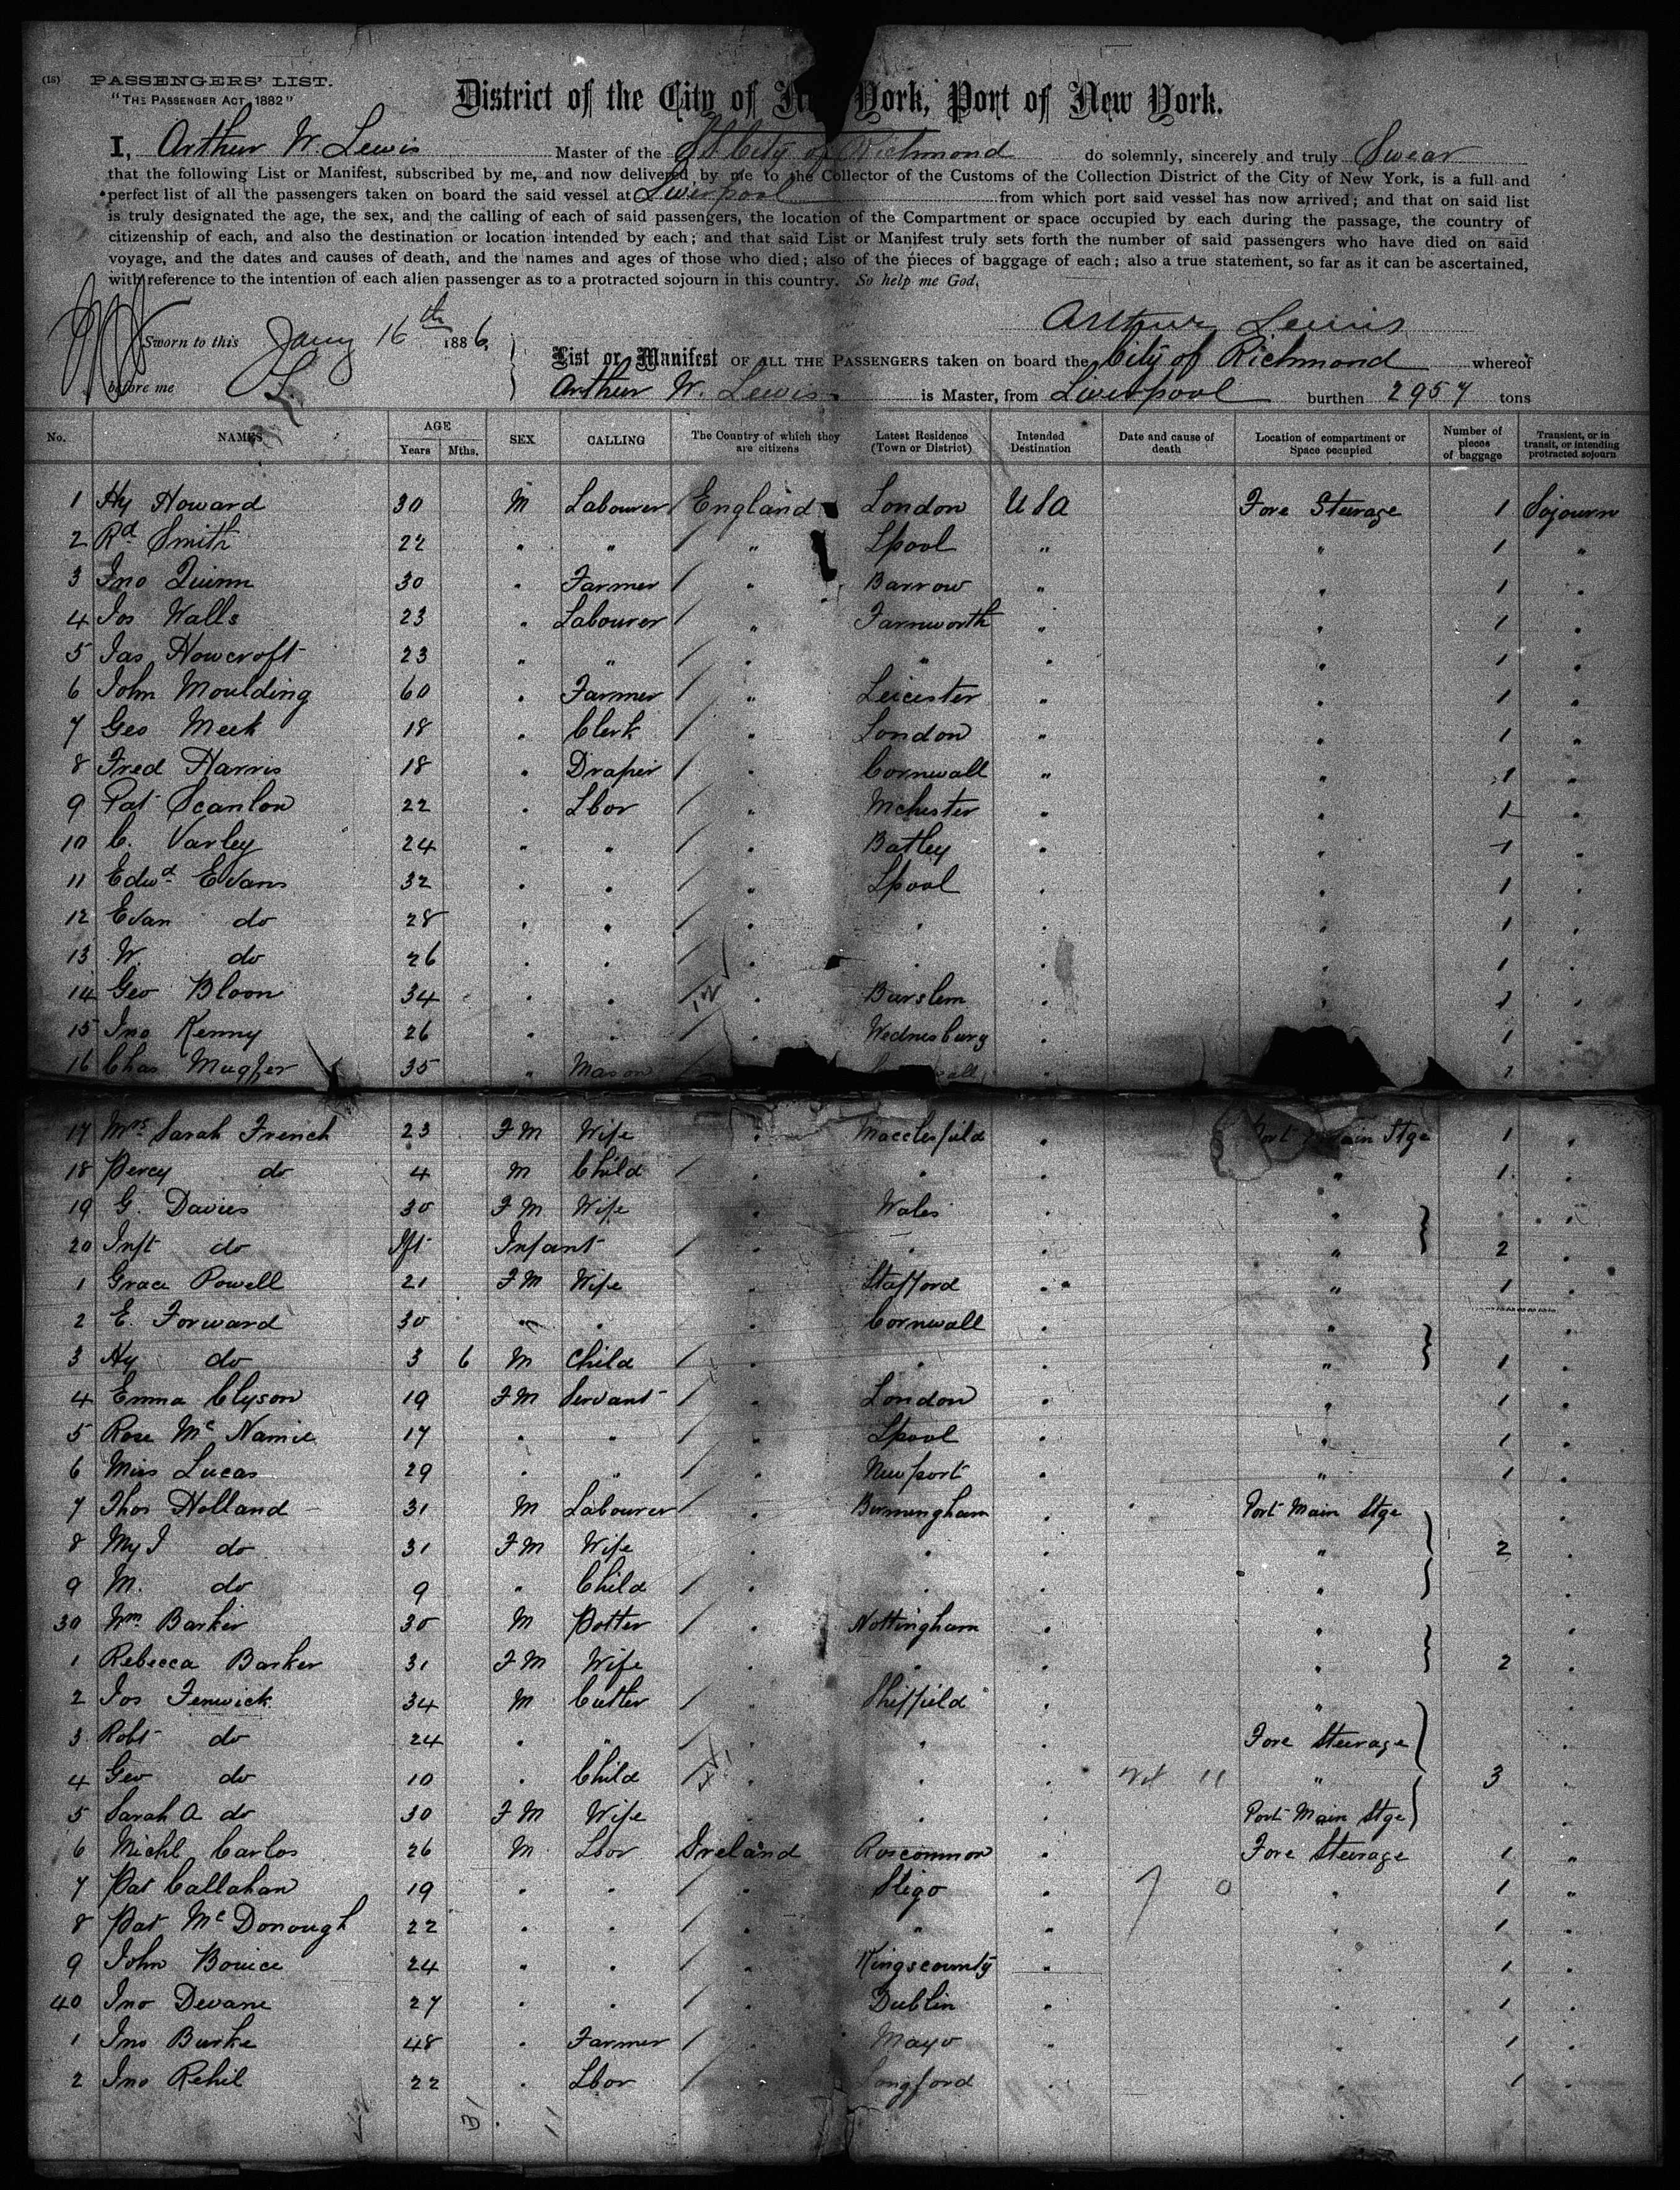 (18) PASSENGERS' LIST.
"THE PASSENGER ACT, 1882"
District of the City of New York, Port of New York.
I, Arthur W. Lewis Master of the SS City of Richmond do solemnly, sincerely and truly Swear
that the following List or Manifest, subscribed by me, and now delivered by me to the Collector of the Customs of the Collection District of the City of New York, is a full and
perfect list of all the passengers taken on board the said vessel at Liverpool from which port said vessel has now arrived; and that on said list
is truly designated the age, the sex, and the calling of each of said passengers, the location of the Compartment or space occupied by each during the passage, the country of
citizenship of each, and also the destination or location intended by each; and that said List or Manifest truly sets forth the number of said passengers who have died on said
voyage, and the dates and causes of death, and the names and ages of those who died; also of the pieces of baggage of each; also a true statement, so far as it can be ascertained,
with reference to the intention of each alien passenger as to a protracted sojourn in this country. So help me God.
Arthur Lewis
Sworn to this Jany 16th 1886
List or Manifest OF ALL THE PASSENGERS taken on board the City of Richmond whereof
before me
Arthur W. Lewis is Master, from Liverpool burthen 2957 tons
No. NAMES AGE Years Mths. SEX CALLING The Country of which they are citizens Latest Residence (Town or District) Intended Destination Date and cause of death Location of compartment or Space occupied Number of pieces of baggage Transient, or in transit, or intending protracted sojourn
1 Hy Howard 30 M Labourer England London USA Fore Steerage 1 Sojourn
2 Rd Smith 22 " " " Lpool " " 1 "
3 Jno Quinn 30 " Farmer " Barrow " " 1 "
4 Jos Walls 23 " Labourer " Farnworth " " 1 "
5 Jas Howcroft 23 " " " " " " 1 "
6 John Moulding 60 " Farmer " Leicester " " 1 "
7 Geo Meek 18 " Clerk " London " " 1 "
8 Fred Harris 18 " Draper " Cornwall " " 1 "
9 Pat Scanlon 22 " Lbor " Mchester " " 1 "
10 C. Varley 24 " " " Batley " " 1 "
11 Edwd Evans 32 " " " Lpool " " 1 "
12 Evan do 28 " " " " " " 1 "
13 W. do 26 " " " " " " 1 "
14 Geo Bloon 34 " " " Burslem " " 1 "
15 Jno Kenny 26 " " " Wednesburg " 1 "
16 Chas Mugfer 35 " Mason " 1 "
17 Mrs Sarah French 23 FM Wife " Macclesfield " Port Main Stge 1 "
18 Percy do 4 M Child " " " " 1 "
19 G. Davies 30 FM Wife " Wales " " "
20 Inft do Ift Infant " " " " 2 "
1 Grace Powell 21 FM Wife " Stafford " " 1 "
2 E. Forward 30 " " " Cornwall " " "
3 Hy do 3 6 M Child " " " " 1 "
4 Emma Clyson 19 FM Servant " London " " 1 "
5 Rose McNamie 17 " " " Lpool " " 1 "
6 Miss Lucas 29 " " " Newport " " 1 "
7 Thos Holland 31 M Labourer " Birmingham " Port Main Stge "
8 My J do 31 FM Wife " " " " 2 "
9 M. do 9 " Child " " " " "
30 Wm Barker 30 M Potter " Nottingham " " "
1 Rebecca Barker 31 FM Wife " " " " 2 "
2 Jos Fenwick 34 M Cutler " Sheffield " " "
3 Robt do 24 " " " " " Fore Steerage "
4 Geo do 10 " Child " " " 11 " 3 "
5 Sarah A do 30 FM Wife " " " Port Main Stge "
6 Michl Carlos 26 M Lbor Ireland Roscommon " Fore Steerage 1 "
7 Pat Callahan 19 " " " Sligo " " 1 "
8 Pat McDonough 22 " " " " " " 1 "
9 John Bowice 24 " " " Kingscounty " " 1 "
40 Jno Devane 27 " " " Dublin " " 1 "
1 Jno Burke 48 " Farmer " Mayo " " 1 "
2 Jno Rehil 22 " Lbor " Longford " " 1 "